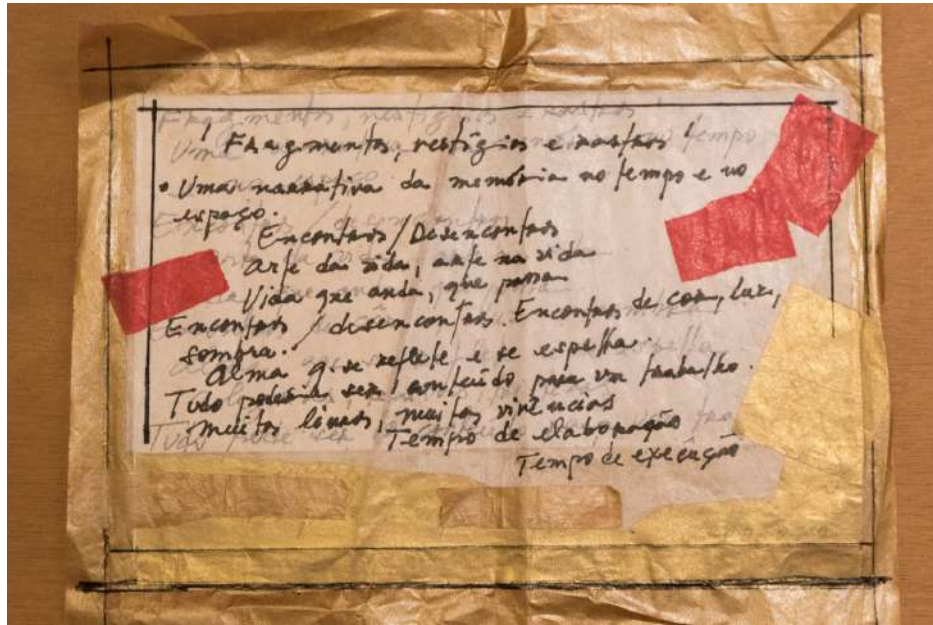 Fragmentos, vestígios e rastros
• Uma narrativa da memória no tempo e no
espaço.
Encontros / Desencontros
Arte da vida, arte na vida
Vida que anda, que passa
Encontros / desencontros. Encontros de cor, luz,
sombra.
Alma q. se reflete e se espelha.
Tudo poderia ser conteúdo para um trabalho.
Muitos livros, muitas vivências
Tempo de elaboração
Tempo de execução